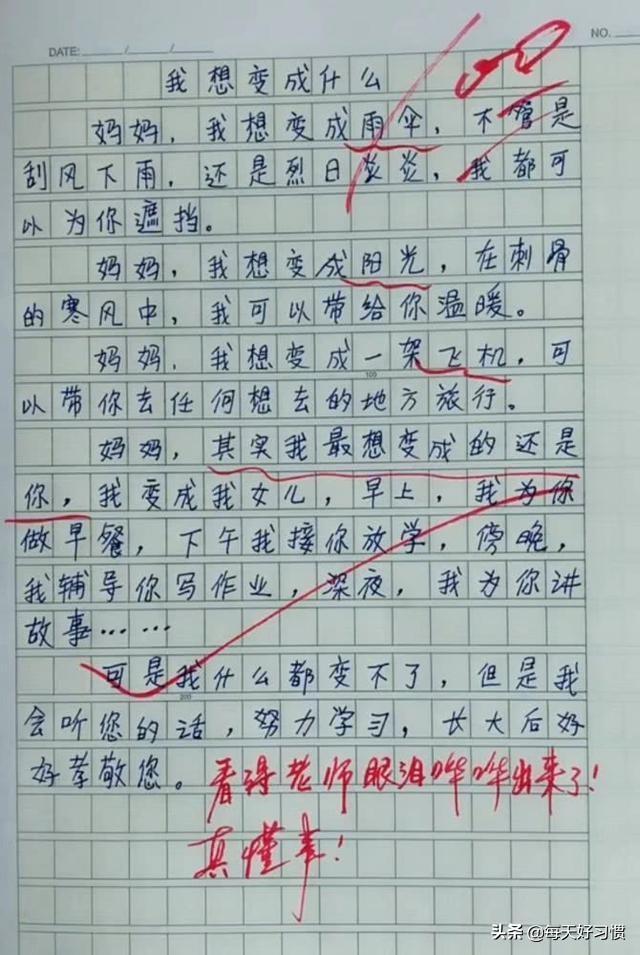 DATE: / /
NO.
100
我想变成什么
妈妈，我想变成雨伞，不管是
刮风下雨，还是烈日炎炎，我都可
以为你遮挡。
妈妈，我想变成阳光，在刺骨
的寒风中，我可以带给你温暖。
妈妈，我想变成一架飞机，可
100
以带你去任何想去的地方旅行。
妈妈，其实我最想变成的还是
你，我变成我女儿，早上，我为你
做早餐，下午我接你放学，傍晚，
我辅导你写作业，深夜，我为你讲
故事……
可是我什么都变不了，但是我
200
会听您的话，努力学习，长大后好
好孝敬您。
看得老师眼泪哗哗出来了！
真懂事！
头条 @每天好习惯